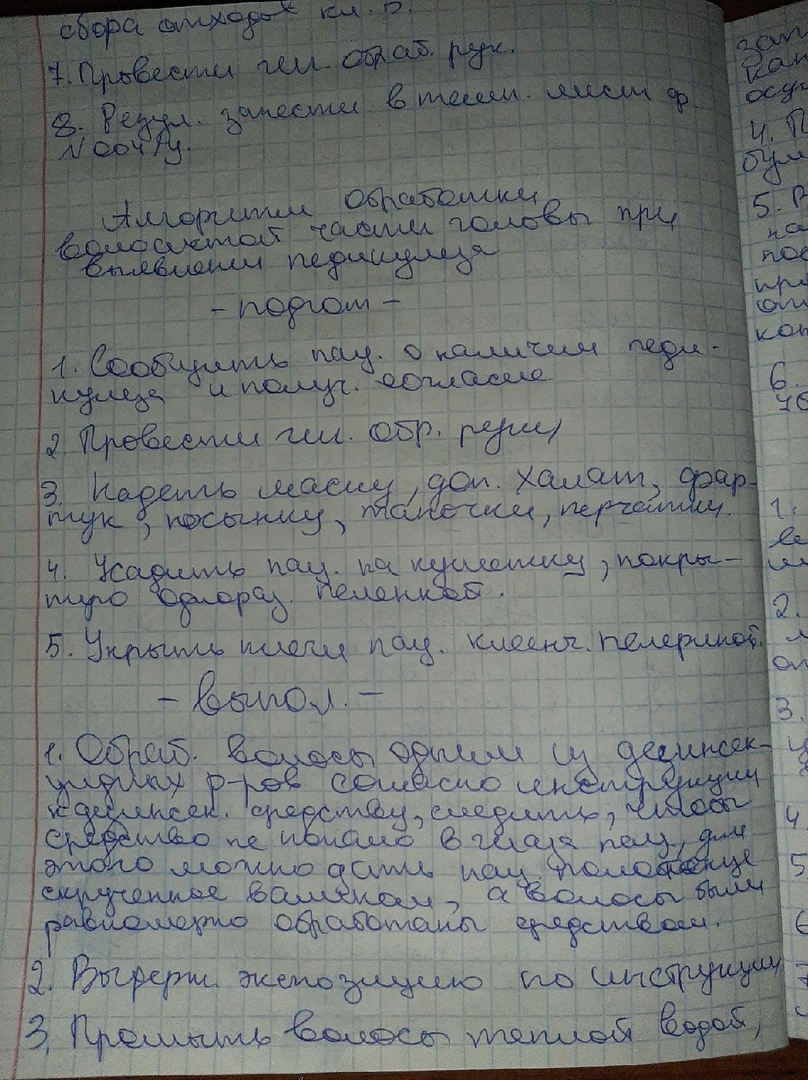 сбора отходов кл. Б.
7. Провести гиг. обраб. рук.
8. Резул. занести в темп. лист ф.
N 004/у.
Алгоритм обработки
волосистой части головы при
выявлении педикулеза
- подгот -
1. Сообщить пац. о наличии педи-
кулеза и получ. согласие
2. Провести гиг. обр. руки
3. Надеть маску, доп. халат, фар-
тук, косынку, тапочки, перчатки.
4. Усадить пац. на кушетку, покры-
тую однораз. пеленкой.
5. Укрыть плечи пац. клеенч. пелериной.
- выпол. -
1. Обраб. волосы одним из дезинсек-
цидных р-ров согласно инструкции
к дезинсек. средству, следить, чтобы
средство не попало в глаза пац, для
этого можно дать пац. полотенце
скрученное валиком, а волосы были
равномерно обработаны средством.
2. Выдерж. экспозицию по инструкции
3. Промыть волосы теплой водой,
4.
5.
6.
1.
2.
3.
4
5